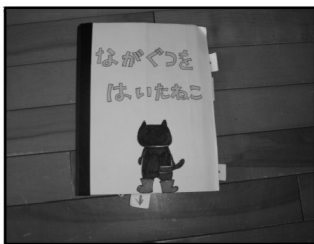 ながぐつを
はいたねこ